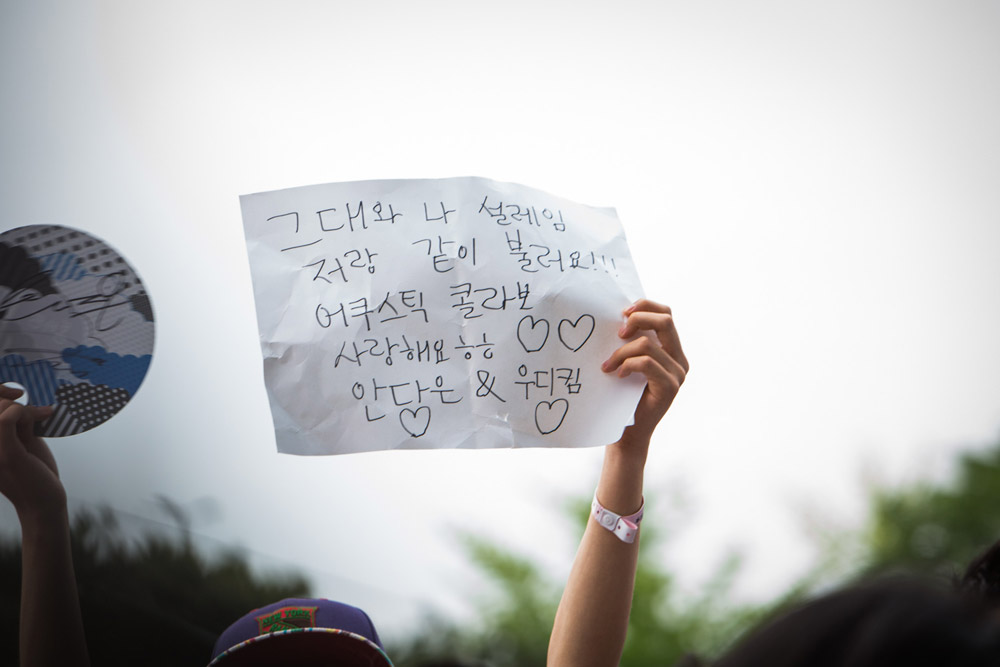 그대와 나 설레임
저랑 같이 불러요!!!
어쿠스틱 콜라보
사랑해요 ㅎㅎ ♡♡
안다은 & 우디킴
♡ ♡
NEW YORK